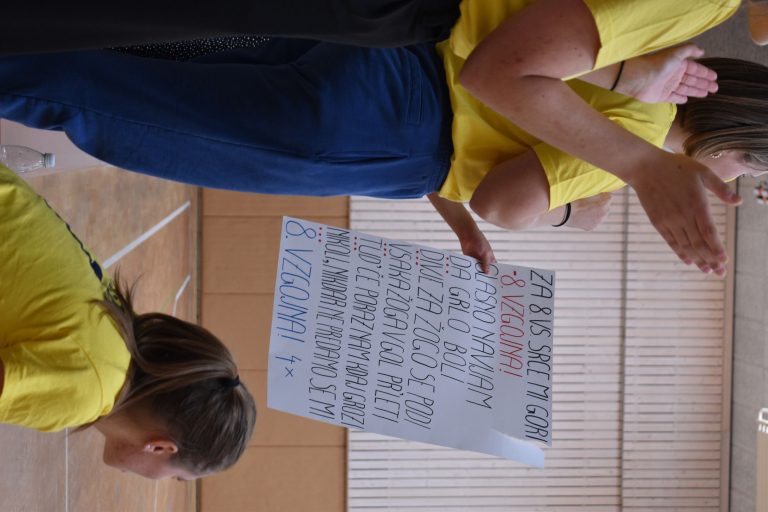 ZA 8 VS SRCE MI GORI
-8. VZGOJNA!
GLASNO NAVIJAM
DA GRLO BOLI
DIVJE ZA ŽOGO SE PODI
VSAKA ŽOGA V GOL PR'LETI
TUD' ČE PORAZ NAM KDAJ GROZI
NIKOL', NIKDAR NE PREDAMO SE MI
8. VZGOJNA! 4x